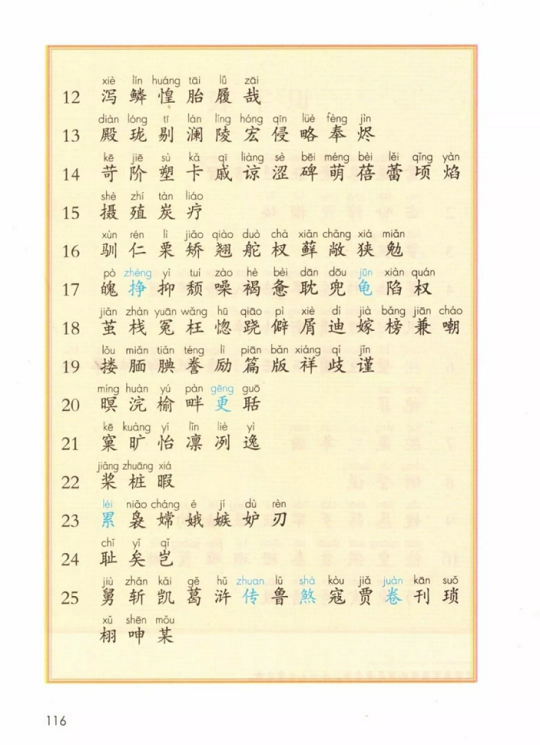 xiè lín huáng tāi lǚ zāi
12 泻 鳞 惶 胎 履 哉
diàn lóng tī lán líng hóng qīn lüè fèng jìn
13 殿 珑 剔 澜 陵 宏 侵 略 奉 烬
kē jiē sù kǎ qī liàng sè bēi méng bèi lěi qǐng yàn
14 苛 阶 塑 卡 戚 谅 涩 碑 萌 蓓 蕾 顷 焰
shè zhí tàn liáo
15 摄 殖 炭 疗
xùn rén lì jiǎo qiáo duò chà xiǎn chǎng xiá miǎn
16 驯 仁 栗 矫 翘 舵 杈 藓 敞 狭 勉
pò zhēng yì tuí zào hè bèi dān dōu jūn xiàn quán
17 魄 挣 抑 颓 噪 褐 惫 耽 兜 龟 陷 权
jiǎn zhàn yuān wǎng hū qiāo pì xiè dí jià bǎng jiān cháo
18 茧 栈 冤 枉 惚 跷 僻 屑 迪 嫁 榜 兼 嘲
lǒu miǎn tiǎn téng lì piān bǎn xiáng qí jǐn
19 搂 腼 腆 誊 励 篇 版 祥 歧 谨
míng huàn yú pàn gēng guō
20 暝 浣 榆 畔 更 聒
kē kuàng yí lǐn liè yì
21 窠 旷 怡 凛 冽 逸
jiǎng zhuāng xiá
22 桨 桩 暇
léi niǎo cháng é jí dù rèn
23 累 袅 嫦 娥 嫉 妒 刃
chǐ yǐ qǐ
24 耻 矣 岂
jiù zhǎn kǎi gě hǔ zhuàn lǔ shà kòu jiǎ juàn kān suǒ
25 舅 斩 凯 葛 浒 传 鲁 煞 寇 贾 卷 刊 琐
xǔ shēn mǒu
栩 呻 某
116